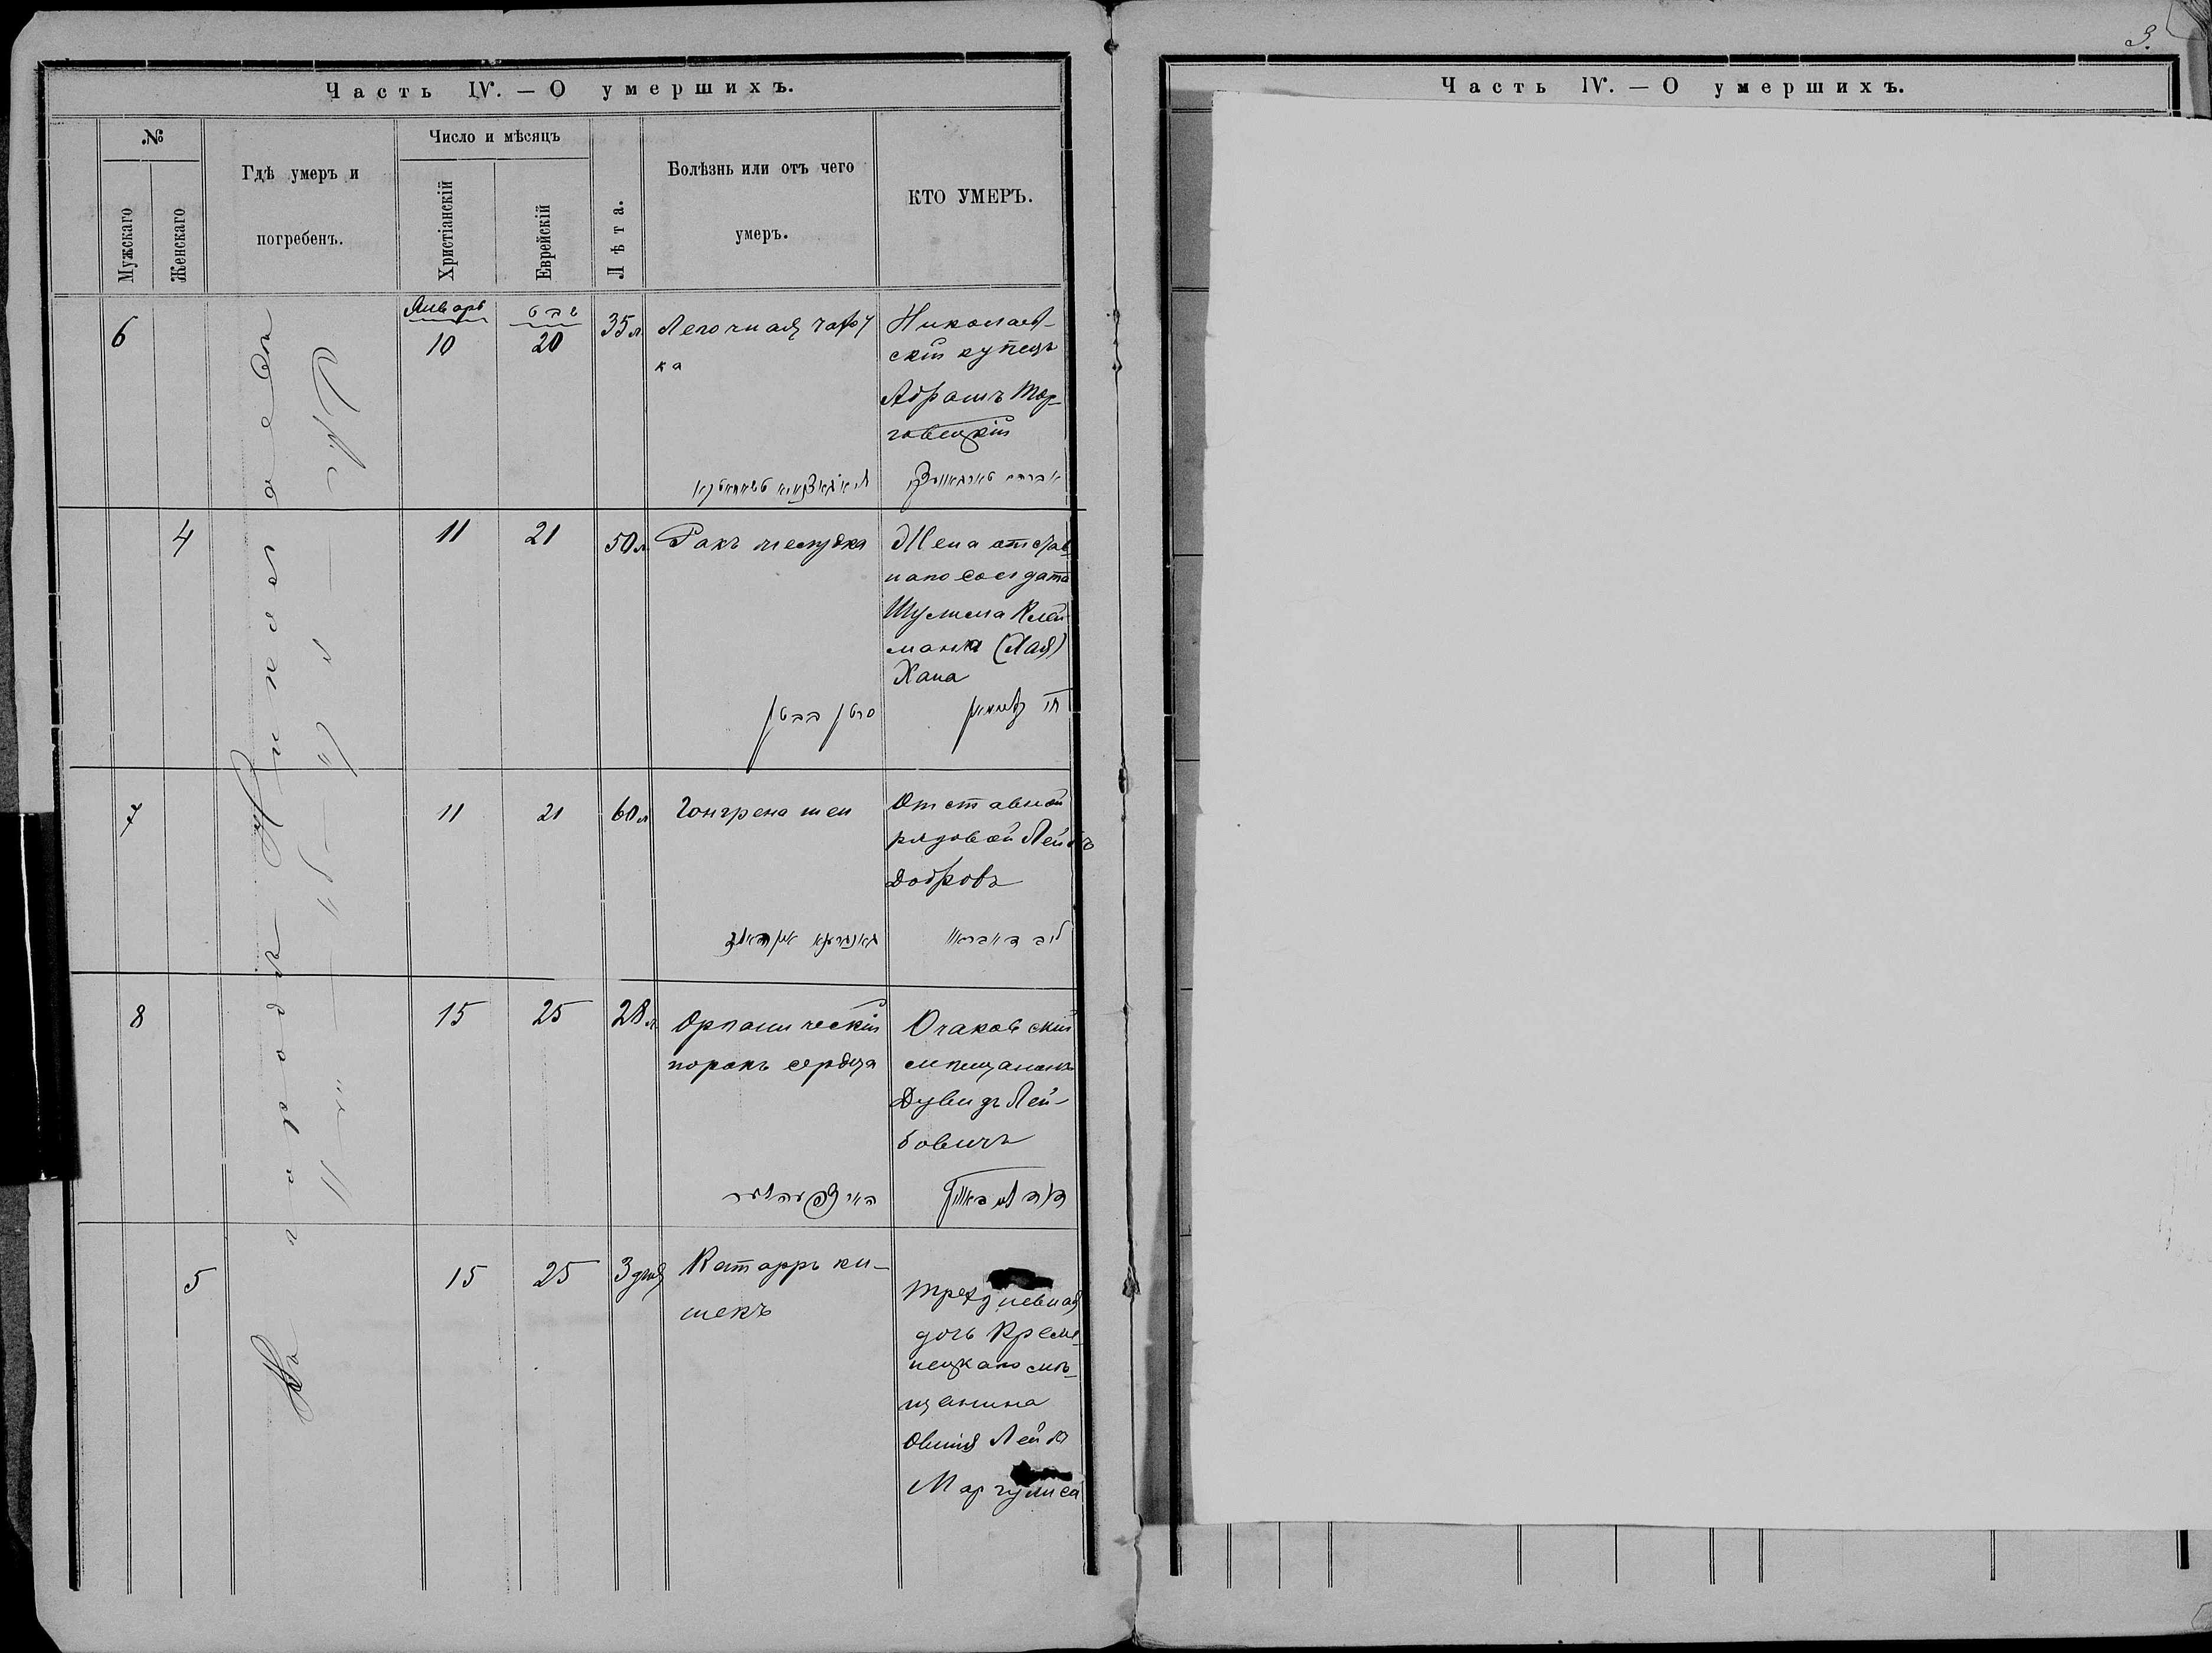 Часть IV. — О умершихъ.
№
Мужскаго
Женскаго
Гдѣ умеръ и
погребенъ.
Число и мѣсяцъ
Христіанскій
Еврейскій
Лѣта.
Болѣзнь или отъ чего
умеръ.
КТО УМЕРЪ.
Въ городѣ Николаевѣ
6
Январь
10
שבט
20
35 л
Легочная чахот
ка
Николаев-
скій купецъ
Абрамъ Тор-
говецкій
אברהם
4
11
21
50 л
Ракъ желудка
Жена отстав
наго солдата
Шулима Клей
мана (Хая)
Хана
סרטן הבטן
7
11
21
60 л
Гонгрена шеи
Отставной
рядовой Лейбъ
Добровъ
8
15
25
28 л
Органическій
порокъ сердца
Очаковскій
мѣщанинъ
Дувидъ Лей-
бовичъ
5
15
25
3 дня
Катарръ ки-
шекъ
трехдневная
дочь Креме
нецкаго мѣ-
щанина
Овшія Лейба
Маргулиса
3.
Часть IV. — О умершихъ.